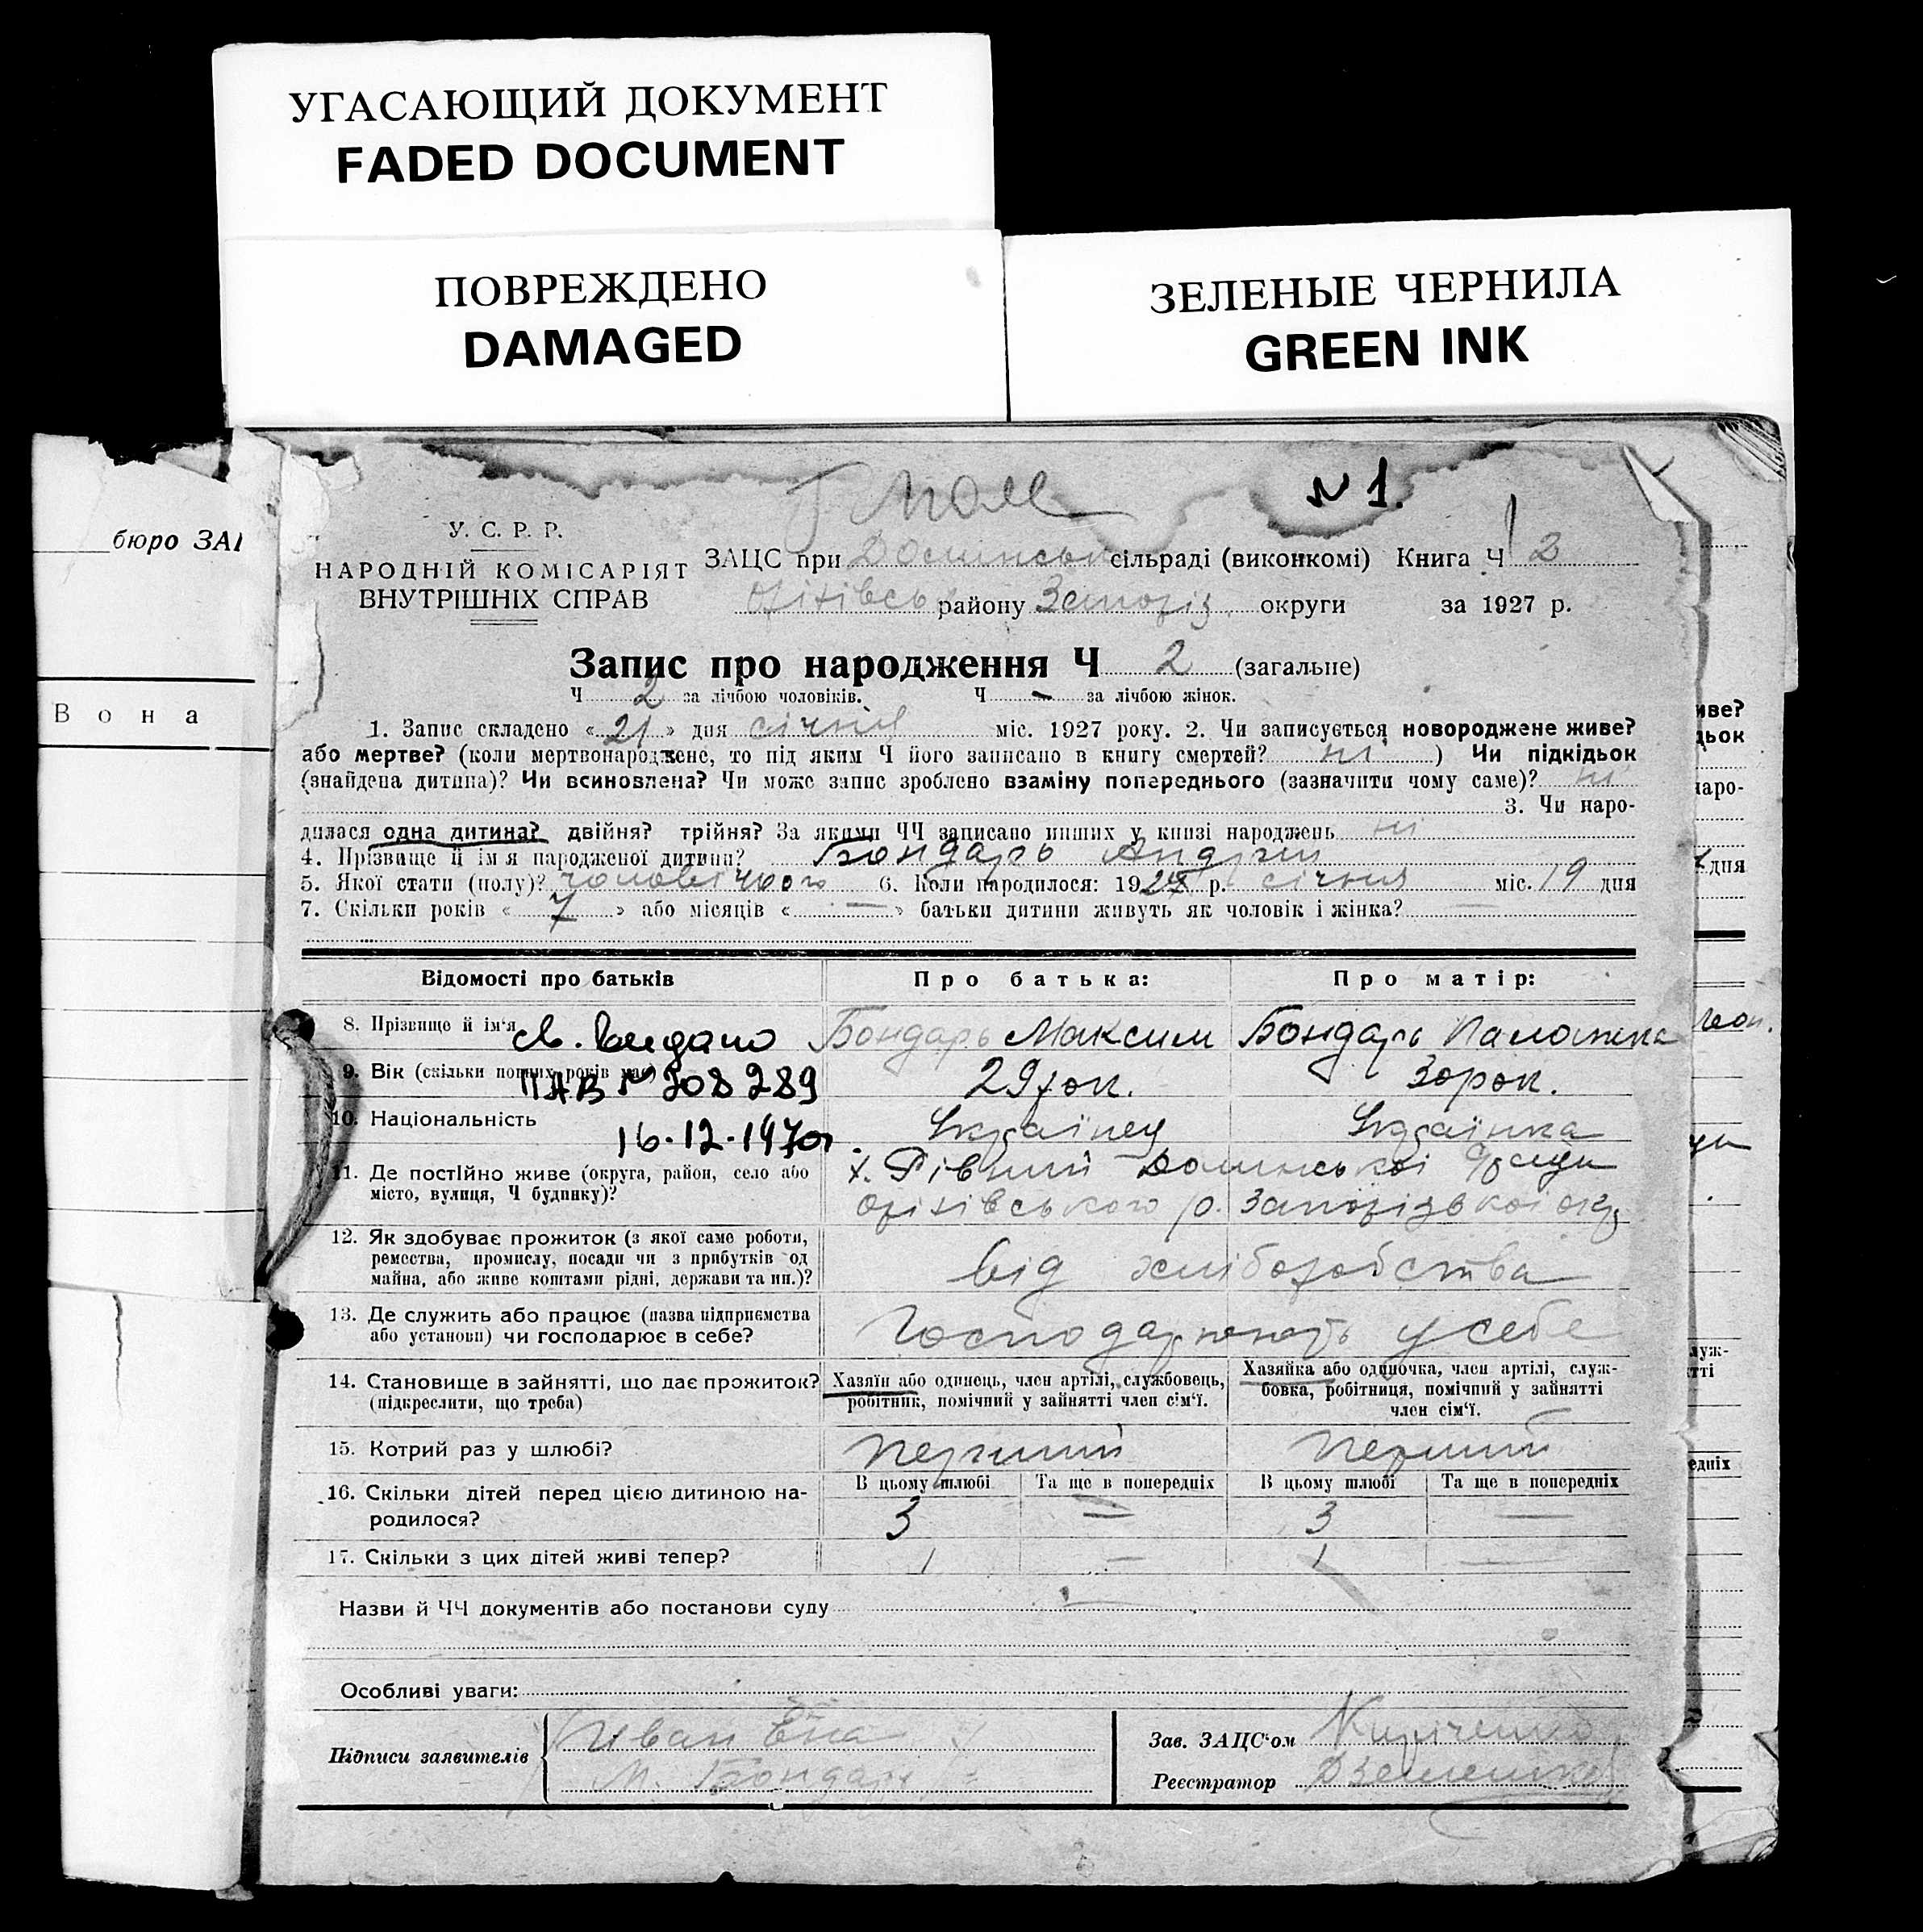 УГАСАЮЩИЙ ДОКУМЕНТ
FADED DOCUMENT
ПОВРЕЖДЕНО
DAMAGED
ЗЕЛЕНЫЕ ЧЕРНИЛА
GREEN INK
бюро ЗА
Вона
N 1.
У. С. Р. Р.
НАРОДНІЙ КОМІСАРІЯТ
ВНУТРІШНІХ СПРАВ
ЗАЦС при Долинськ сільраді (виконкомі) Книга Ч 2
Оріхівськ району Запоріз. округи за 1927 р.
Запис про народження Ч 2 (загальне)
Ч 2 за лічбою чоловіків. Ч — за лічбою жінок.
1. Запис складено « 21 » дня січня міс. 1927 року. 2. Чи записується новороджене живе?
або мертве? (коли мертвонароджене, то під яким Ч його записано в книгу смертей? ні ) Чи підкідьок
(знайдена дитина)? Чи всиновлена? Чи може запис зроблено взаміну попереднього (зазначити чому саме)? ні
3. Чи наро-
дилася одна дитина? двійня? трійня? За якими ЧЧ записано инших у книзі народжень ні
4. Прізвище й ім'я народженої дитини? Бондарь Андрій
5. Якої стати (полу)? чоловічого 6. Коли народилося: 1927 р. січня міс. 19 дня
7. Скільки років « 7 » або місяців « — » батьки дитини живуть як чоловік і жінка? —
Відомості про батьків Про батька: Про матір:
8. Прізвище й ім'я Бондарь Максим Бондарь Палажка
св. выдано
9. Вік (скільки повних років має) 29 рок. 30 рок.
ПАВ № 208289
10. Національність Українец Українка
16-12-1970г.
11. Де постійно живе (округа, район, село або
місто, вулиця, Ч будинку)?
х. Рівний Долинської с/ради
Оріхівського р. Запорізької окр
12. Як здобуває прожиток (з якої саме роботи,
ремества, промислу, посади чи з прибутків од
майна, або живе коштами рідні, держави та ин.)?
від хліборобства
13. Де служить або працює (назва підприємства
або установи) чи господарює в себе?
Господарюють у себе
14. Становище в зайнятті, що дає прожиток?
(підкреслити, що треба)
Хазяїн або одинець, член артілі, службовець,
робітник, помічний у зайнятті член сім'ї.
Хазяйка або одиночка, член артілі, служ-
бовка, робітниця, помічний у зайнятті
член сім'ї.
15. Котрий раз у шлюбі? перший перший
В цьому шлюбі Та ще в попередніх В цьому шлюбі Та ще в попередніх
16. Скільки дітей перед цією дитиною на-
родилося?
3 — 3 —
17. Скільки з цих дітей живі тепер? 1 — 1 —
Назви й ЧЧ документів або постанови суду —
Особливі уваги:
Підписи заявителів
Иван
М. Бондарь
Зав. ЗАЦС'ом Киріченко
Реєстратор
иве?
дьок
наро-
дня
луж-
тті
едніх